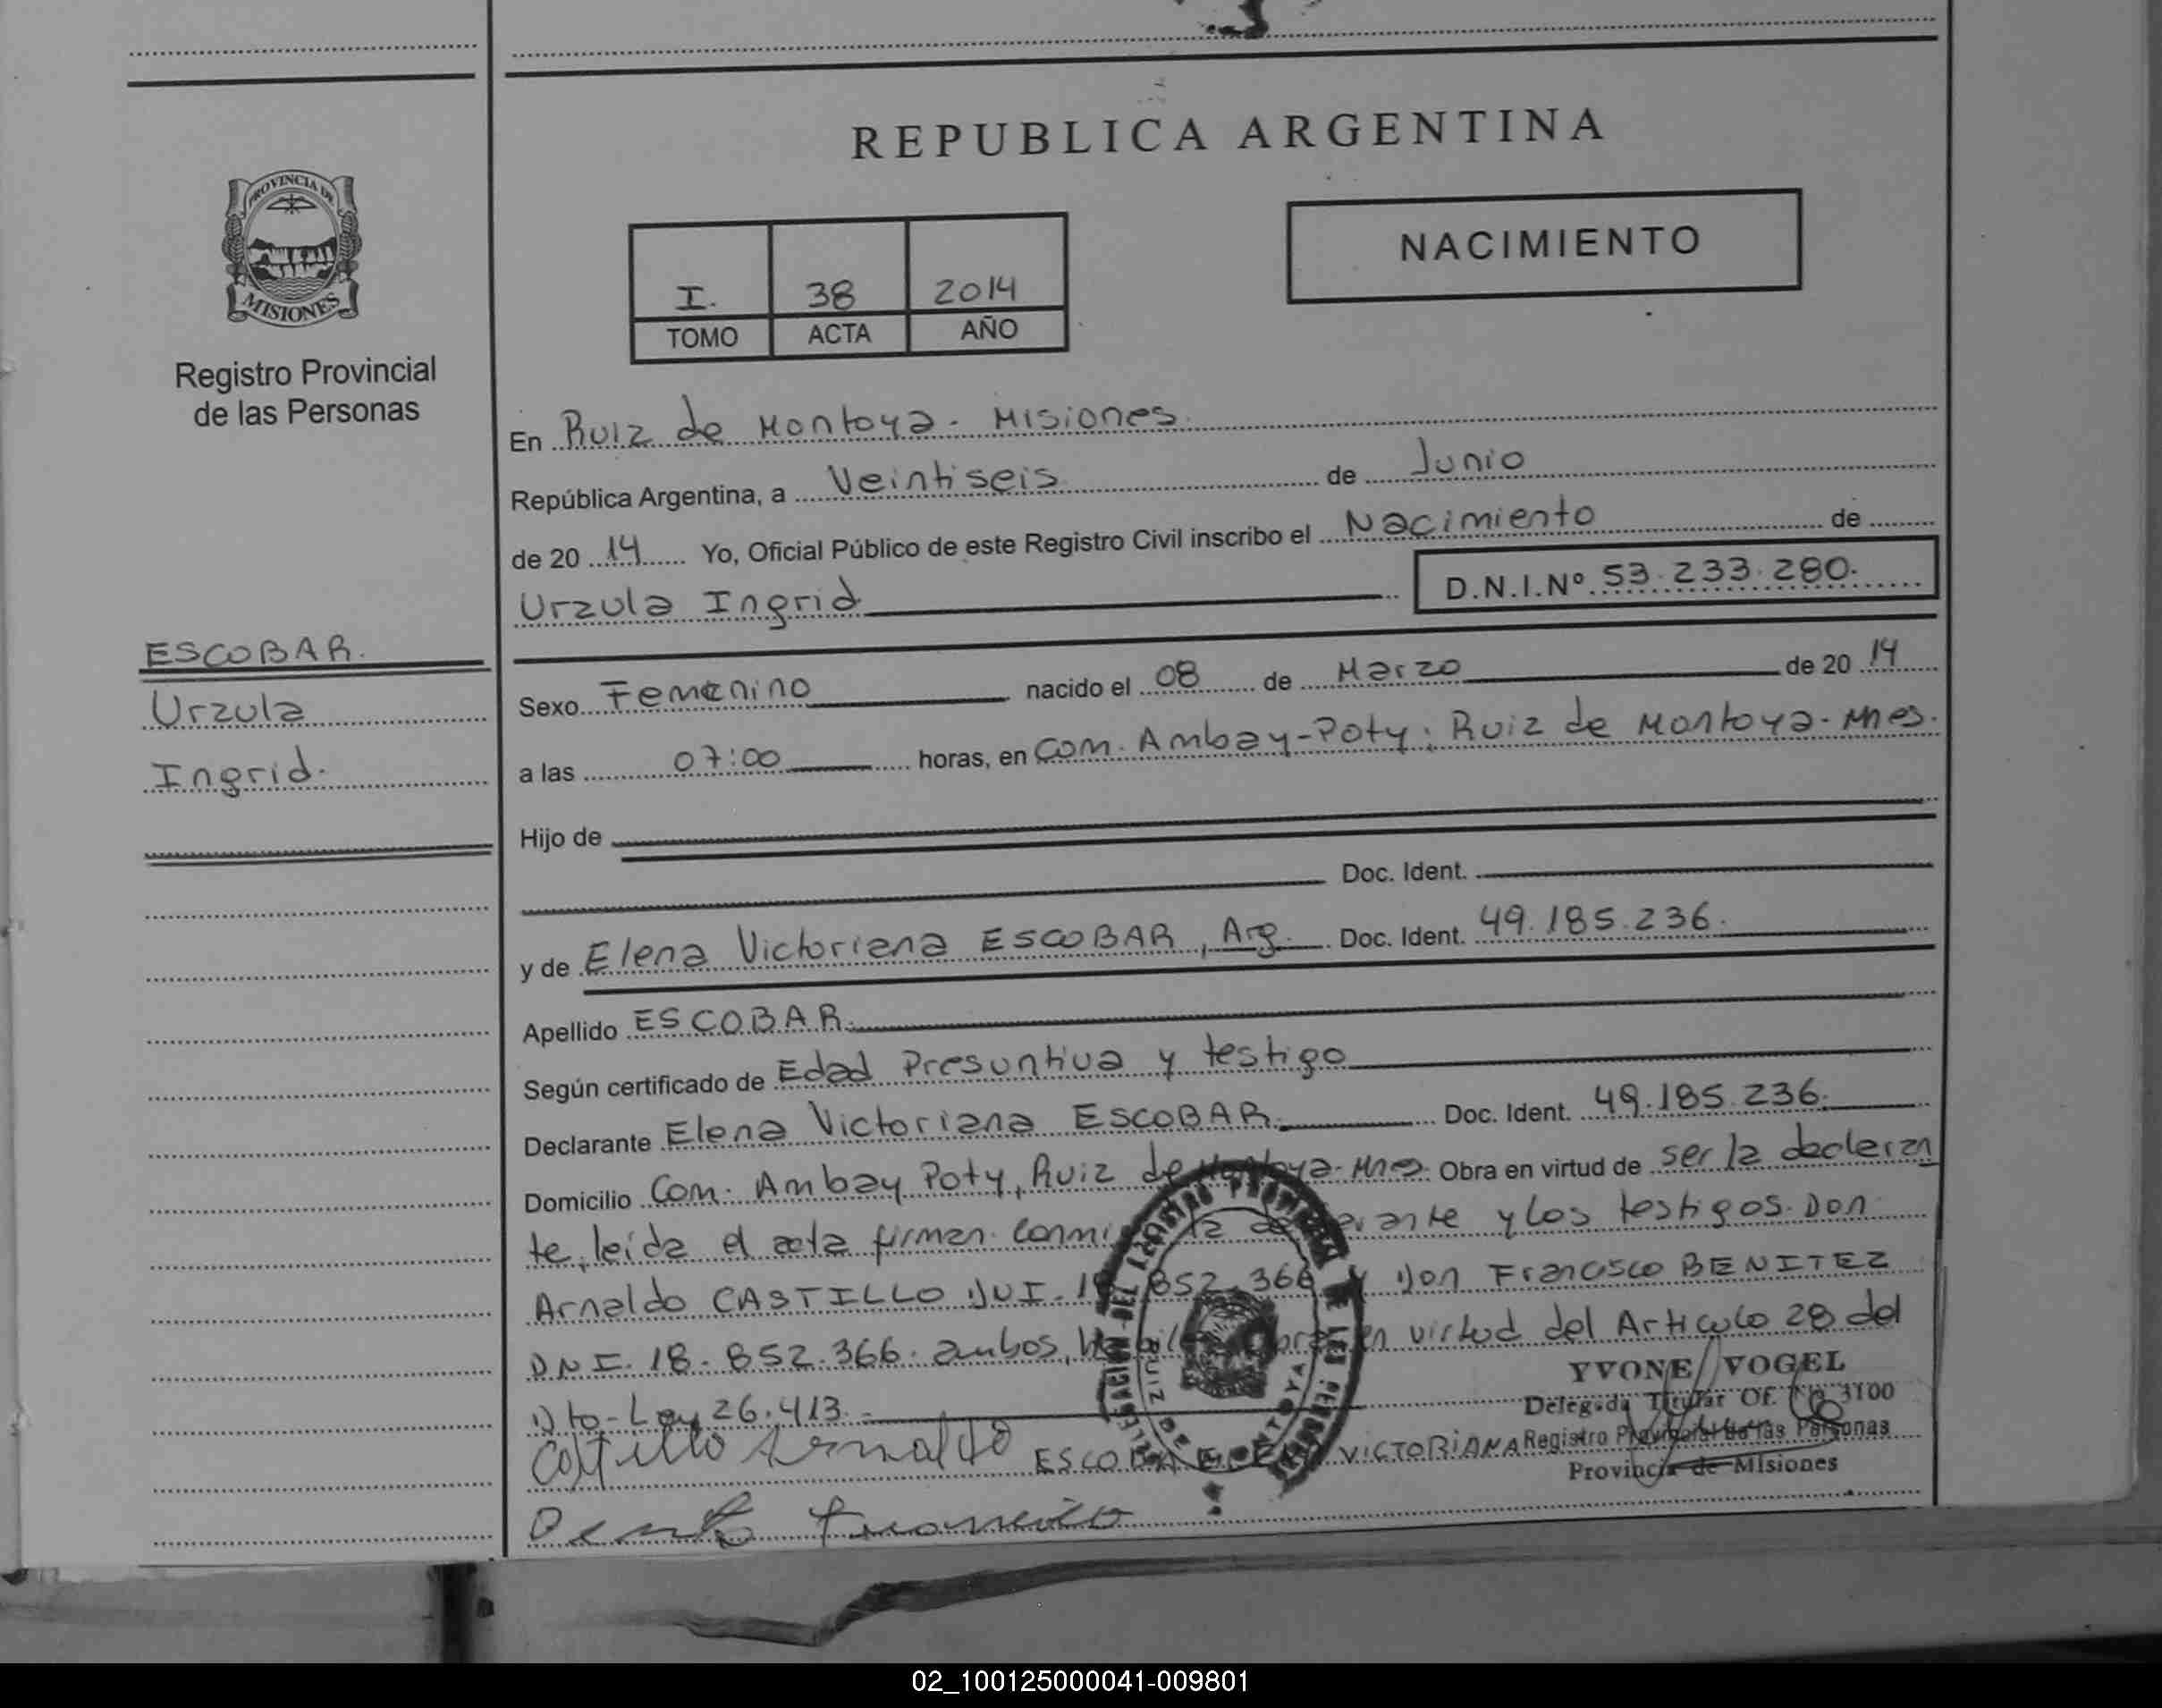 REPUBLICA ARGENTINA
PROVINCIA DE
MISIONES
Registro Provincial
de las Personas
NACIMIENTO
I. 38 2014
TOMO ACTA AÑO
En Ruiz de Montoya - Misiones.
República Argentina, a Veintiseis de Junio
de 20 14 Yo, Oficial Público de este Registro Civil inscribo el Nacimiento de
Urzula Ingrid D.N.I.Nº 53.233.280.
ESCOBAR.
Urzula
Ingrid.
Sexo Femenino nacido el 08 de Marzo de 20 14
a las 07:00 horas, en Com. Ambay-Poty; Ruiz de Montoya - Mnes.
Hijo de
Doc. Ident.
y de Elena Victoriana ESCOBAR, Arg. Doc. Ident. 49.185.236.
Apellido ESCOBAR.
Según certificado de Edad Presuntiva y testigo
Declarante Elena Victoriana ESCOBAR. Doc. Ident. 49.185.236.
Domicilio Com. Ambay Poty, Ruiz de Montoya - Mnes Obra en virtud de ser la declaran
te, leida el acta firman conmi la declarante y los testigos Don
Arnaldo CASTILLO DNI. 18.852.366 y Don Francisco BENITEZ
DNI. 18.852.366. ambos, en virtud del Articulo 28 del
Dto-Ley 26.413.-
YVONE VOGEL
Delegada Titular Of. Nº 3100
Registro Provincial de las Personas
Provincia de Misiones
Castillo Arnaldo ESCOBAR ELENA VICTORIANA
Francisco
DELEGACION DEL REGISTRO PROVINCIAL DE LAS PERSONAS
RUIZ DE MONTOYA
02_100125000041-009801